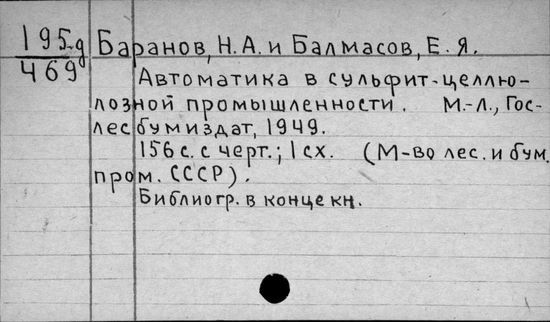 195д
469
Баранов, Н.А. и Балмасов, Е.Я.
Автоматика в сульфит-целлю-
лозной промышленности. М.-Л., Гос-
лесбумиздат, 1949.
156 с. с черт.; 1 сх. (М-во лес. и бум.
пром. СССР).
Библиогр. в конце кн.